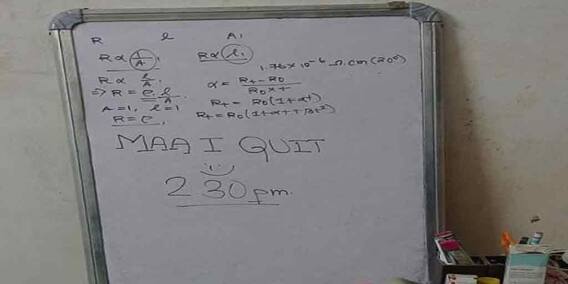 R l A1
R ∝ 1/A, R ∝ l,
1.76 × 10⁻⁶ Ω.cm (20°)
R ∝ l/A,
α = Rt - R0 / R0 × t
⇒ R = ρ l/A
Rt = R0 (1 + αt)
A = 1, l = 1
Rt = R0 (1 + αt + βt²)
R = ρ,
MAA I QUIT
2 30 pm.